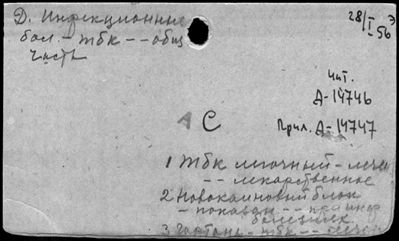 Д. Инфекционные
бол. - тбк -- общ
часть
28/I 56
Чит.
Д-14746
Прил. Д-14747
А С
1 Тбк легочный - лечен
-- лекарственное
2 Новокаиновый блок
- показан -- при инф
болезнях
3 Гортань - тбк -- лечен